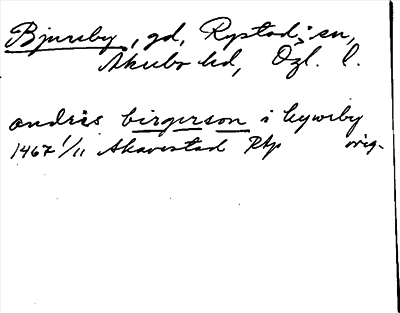 Bjureby, gd, Rystads sn,
Åkerbo hd, Ögl. l.
andris birgerson i bywrby
1467 1/11 Skavestad Rtp orig.